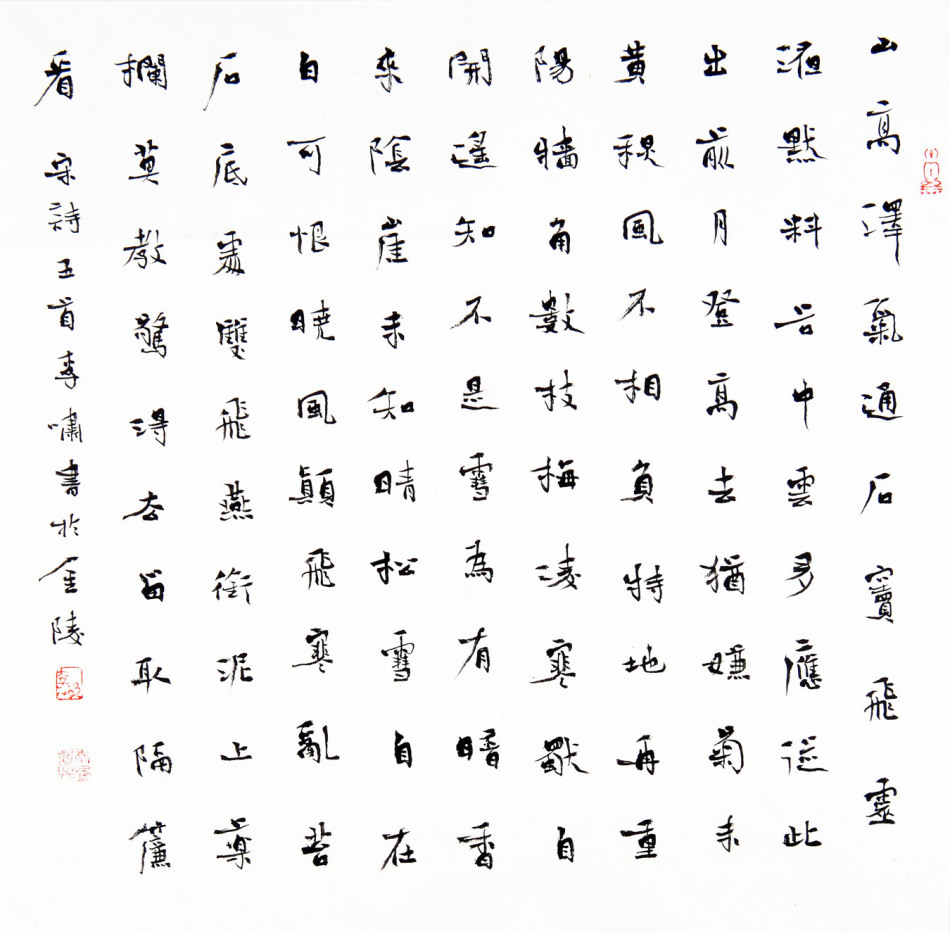 山高澤氣通石竇飛靈
液默料谷中雲多應從此
出前月登高去猶嫌菊未
黃秋風不相負特地再重
陽牆角數枝梅凌寒獨自
開遙知不是雪為有暗香
來陰崖未知晴松雪自在
自可恨曉風顛飛寒亂苔
石底處雙飛燕銜泥上藥
欄莫教驚得去留取隔簾
看 宋詩五首李嘯書於金陵